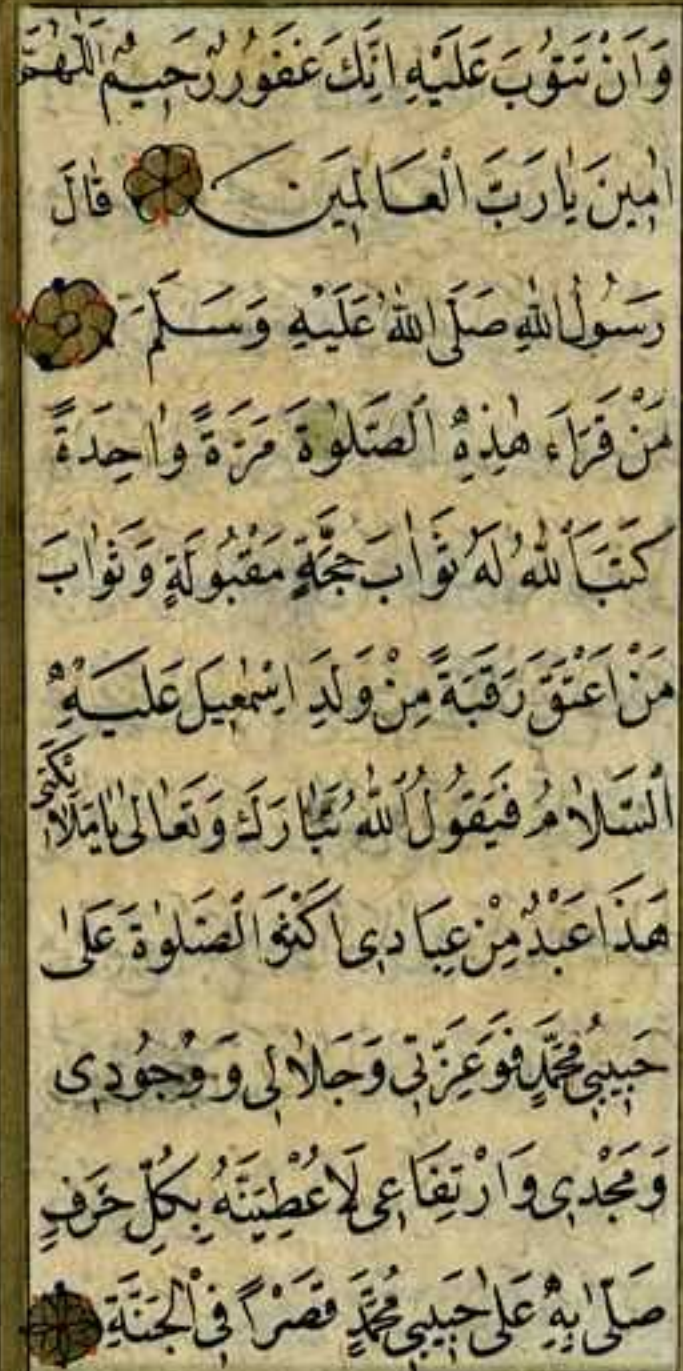 وَاَنْ تَتُوبَ عَلَيْهِ اِنَّكَ غَفُورٌ رَحِيمٌ اَللّٰهُمَّ
اٰمِينَ يَا رَبَّ الْعَالَمِينَ قَالَ
رَسُولُ اللهِ صَلَّى اللهُ عَلَيْهِ وَسَلَّمَ
مَنْ قَرَاَءَ هٰذِهِ الصَّلٰوةَ مَرَّةً وَاحِدَةً
كَتَبَ اللهُ لَهُ ثَوَابَ حَجَّةٍ مَقْبُولَةٍ وَثَوَابَ
مَنْ اَعْتَقَ رَقَبَةً مِنْ وَلَدِ اِسْمٰعِيلَ عَلَيْهِ
السَّلَامُ فَيَقُولُ اللهُ تَبَارَكَ وَتَعَالٰى يَا مَلَائِكَتِى
هَذَا عَبْدٌ مِنْ عِبَادِى اَكْثَرَ الصَّلٰوةَ عَلٰى
حَبِيبِى مُحَمَّدٍ فَوَعِزَّتِى وَجَلَالِى وَوُجُودِى
وَمَجْدِى وَارْتِفَاعِى لَاُعْطِيَنَّهُ بِكُلِّ حَرْفٍ
صَلّٰى بِهِ عَلٰى حَبِيبِى مُحَمَّدٍ قَصْرًا فِى الْجَنَّةِ